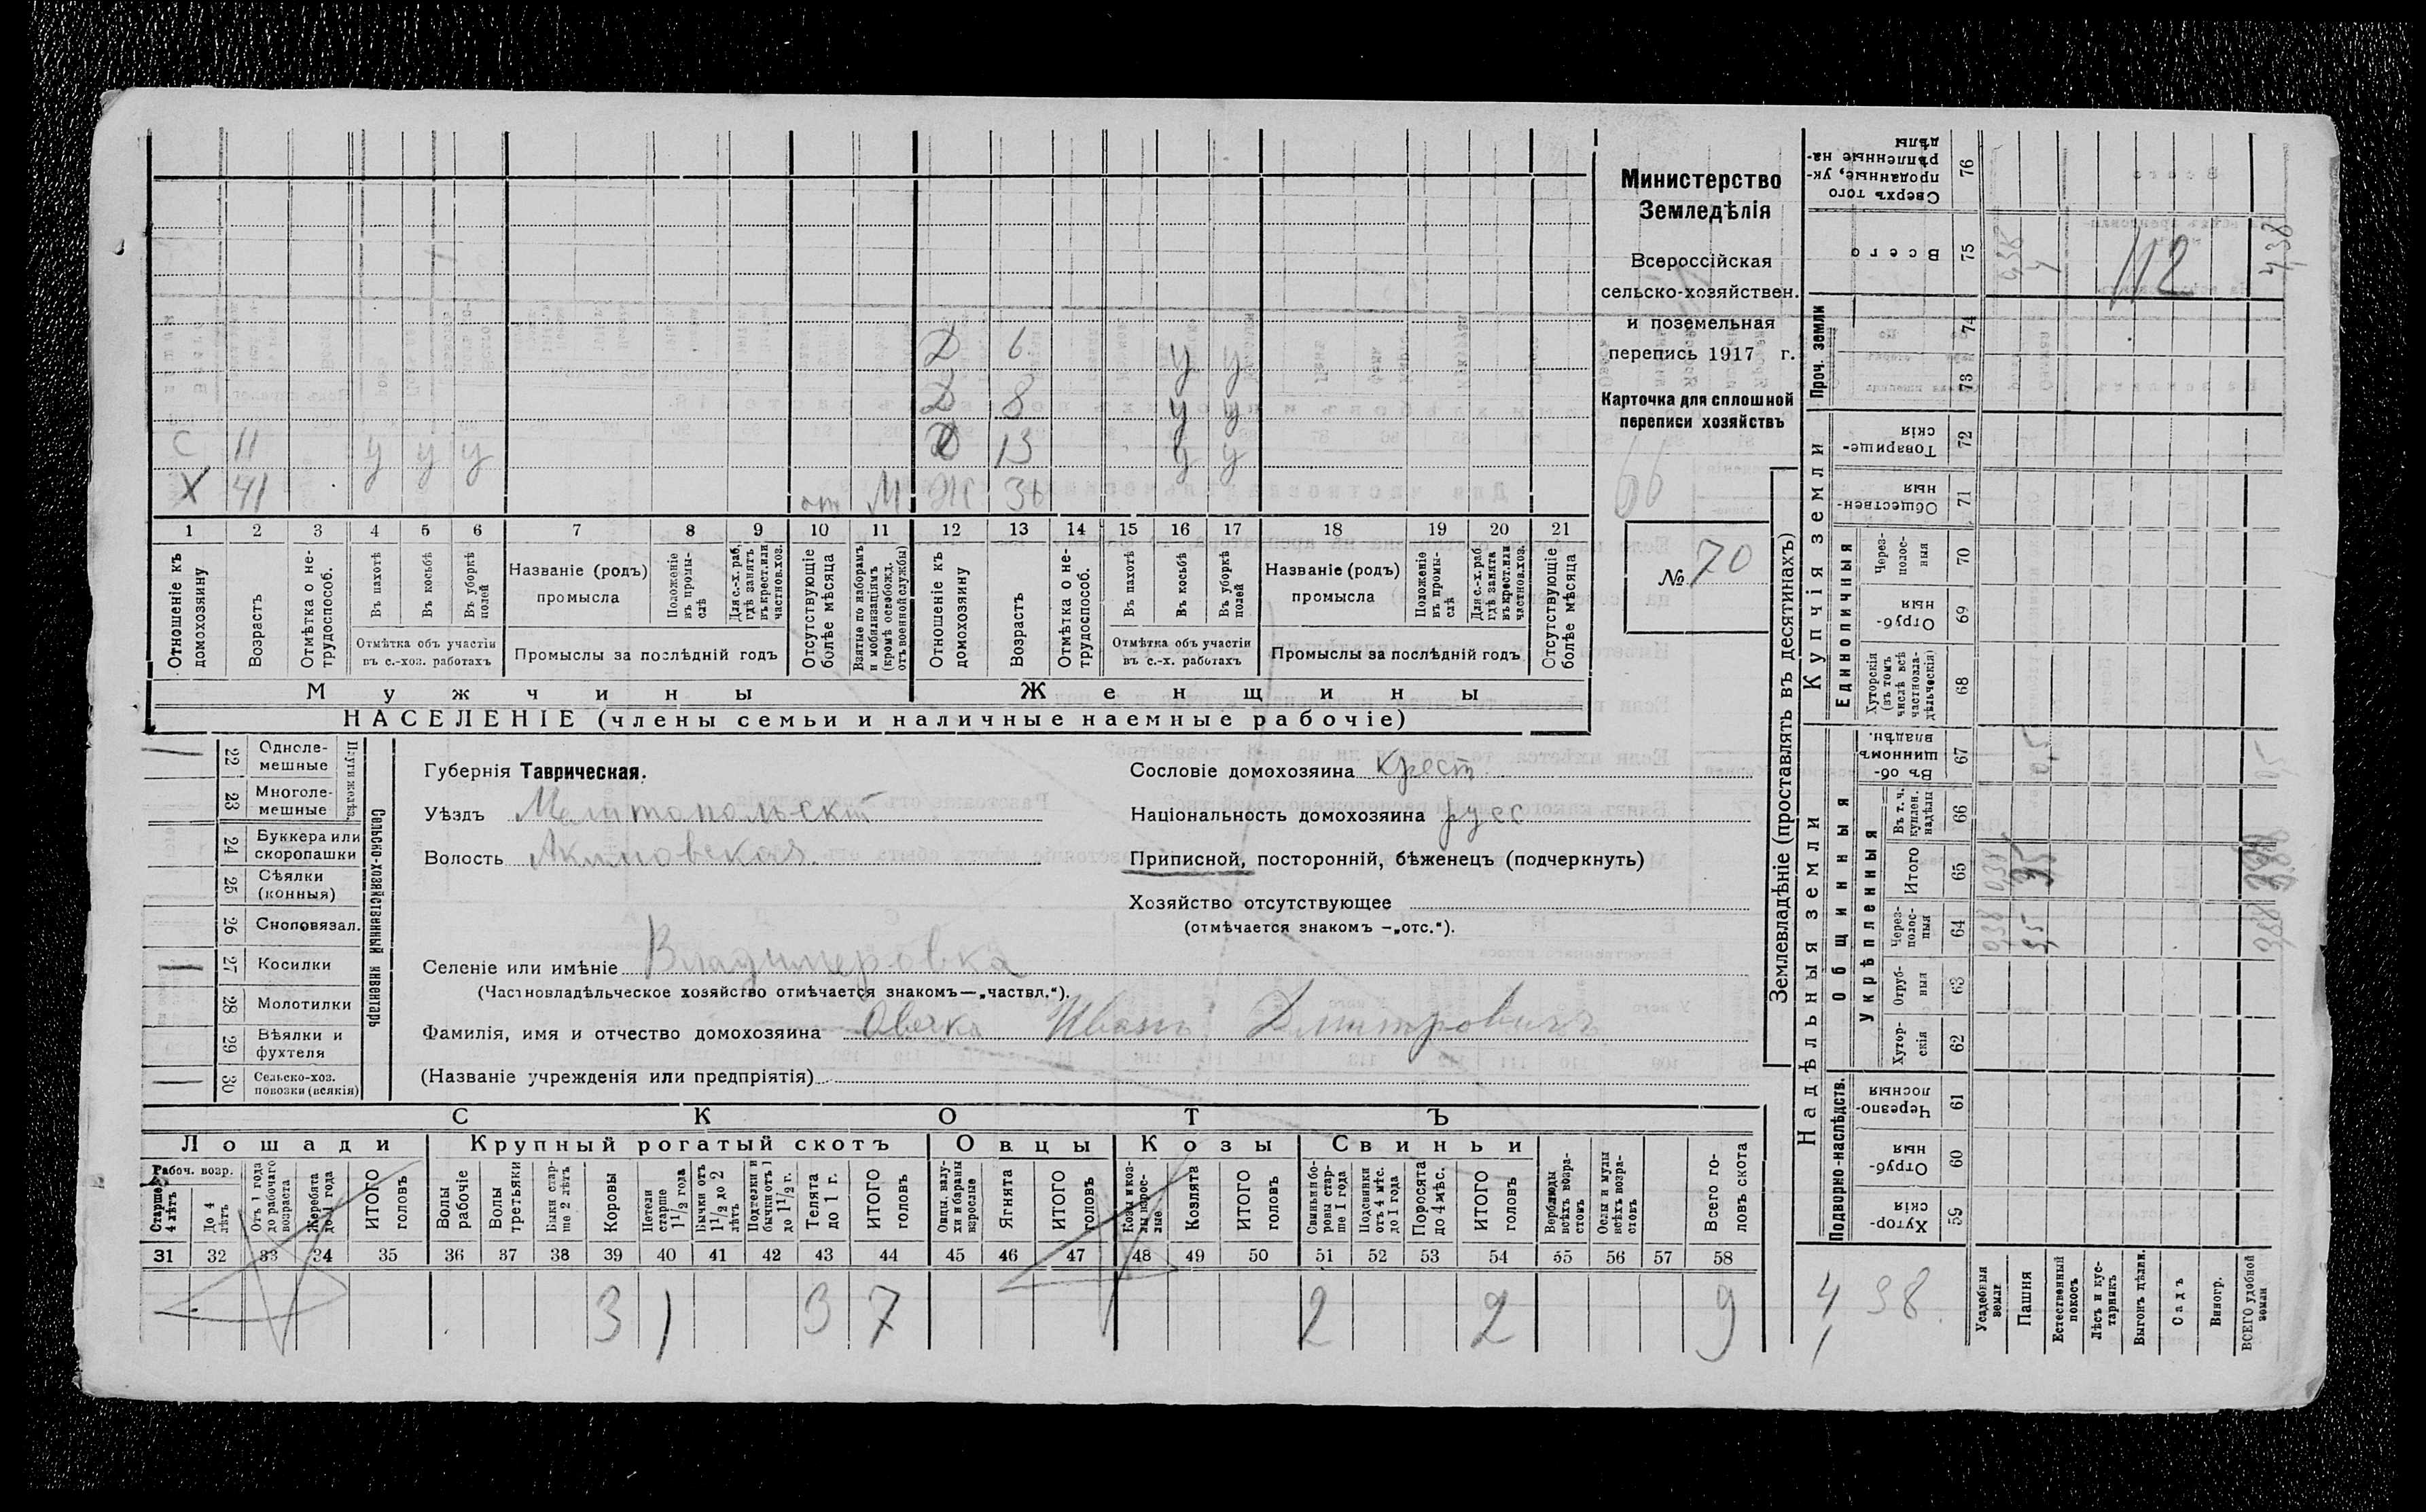 Д 6 у у
Д 8 у у
С 11 у у у Д 13 у у
Х 41 от М Ж 36
1 2 3 4 5 6 7 8 9 10 11 12 13 14 15 16 17 18 19 20 21
Отношеніе къ домохозяину
Возрастъ
Отмѣтка о не-трудоспособ.
Въ пахотѣ
Въ косьбѣ
Въ уборкѣ полей
Отмѣтка объ участіи въ с.-хоз. работахъ
Названіе (родъ) промысла
Положеніе въ промы-слѣ
Для с.-х. раб. гдѣ занятъ въ крест. или частнов. хоз.
Промыслы за послѣдній годъ
Отсутствующіе болѣе мѣсяца
Взятые по наборамъ и мобилизаціямъ (кромѣ освобожд. отъ военной службы)
Отношеніе къ домохозяину
Возрастъ
Отмѣтка о не-трудоспособ.
Въ пахотѣ
Въ косьбѣ
Въ уборкѣ полей
Отмѣтка объ участіи въ с.-х. работахъ
Названіе (родъ) промысла
Положеніе въ промы-слѣ
Для с.-х. раб. гдѣ занята въ крест. или частнов. хоз.
Промыслы за послѣдній годъ
Отсутствующіе болѣе мѣсяца
Мужчины
Женщины
НАСЕЛЕНІЕ (члены семьи и наличные наемные рабочіе)
Министерство
Земледѣлія
Всероссійская
сельско-хозяйствен.
и поземельная
перепись 1917 г.
Карточка для сплошной
переписи хозяйствъ
66
№ 70
Сельско-хозяйственный инвентарь
Плуги желѣз.
22 Одноле-мешные
23 Многоле-мешные
24 Буккера или скоропашки
25 Сѣялки (конныя)
26 Сноповязал.
27 Косилки
28 Молотилки
29 Вѣялки и фухтеля
30 Сельско-хоз. повозки (всякія)
Губернія Таврическая.
Уѣздъ Мелитопольскій
Волость Акимовская
Сословіе домохозяина крест.
Національность домохозяина русс
Приписной, посторонній, бѣженецъ (подчеркнуть)
Хозяйство отсутствующее
(отмѣчается знакомъ —„отс.“).
Селеніе или имѣніе Владимеровка
(Частновладѣльческое хозяйство отмѣчается знакомъ—„частвл.“).
Фамилія, имя и отчество домохозяина Овечка Иванъ Дмитровичъ
(Названіе учрежденія или предпріятія)
СКОТЪ
Лошади
Крупный рогатый скотъ
Овцы
Козы
Свиньи
Рабоч. возр.
Старше 4 лѣтъ
До 4 лѣтъ
Отъ 1 года до рабочаго возраста
Жеребята до 1 года
ИТОГО головъ
Волы рабочіе
Волы третьяки
Быки стар-ше 2 лѣтъ
Коровы
Нетели старше 1 1/2 года
Бычки отъ 1 1/2 до 2 лѣтъ
Подтелки и бычки отъ 1 до 1 1/2 г.
Телята до 1 г.
ИТОГО головъ
Овцы, валу-хи и бараны взрослые
Ягнята
ИТОГО головъ
Козы и коз-лы взрос-лые
Козлята
ИТОГО головъ
Свиньи и бо-ровы стар-ше 1 года
Подсвинки отъ 4 мѣс. до 1 года
Поросята до 4 мѣс.
ИТОГО головъ
Верблюды всѣхъ возра-стовъ
Ослы и мулы всѣхъ возра-стовъ
Всего го-ловъ скота
31 32 33 34 35 36 37 38 39 40 41 42 43 44 45 46 47 48 49 50 51 52 53 54 55 56 57 58
3 1 3 7 2 2 9
Землевладѣніе (проставлять въ десятинахъ)
Надѣльныя земли
Купчія земли
Проч. земли
Подворно-наслѣдств.
Общинныя
Укрѣпленныя
Единоличныя
Сверхъ того проданные, ук-рѣпленные на-дѣлы 76
Всего 75
74
73
Товарище-скія 72
Обществен-ныя 71
Через-полос-ныя 70
Отруб-ныя 69
Хуторскія (въ томъ числѣ всѣ частновла-дѣльческія) 68
Въ об-щинномъ владѣн. 67
Въ т. ч. куплен. надѣлы 66
Итого 65
Через-полос-ныя 64
Отруб-ныя 63
Хутор-скія 62
Черезпо-лосныя 61
Отруб-ныя 60
Хутор-скія 59
Усадебныя земли
Пашня
Естественный покосъ
Лѣсъ и кус-тарникъ
Выгонъ дѣлин.
Садъ
Виногр.
ВСЕГО удобной земли
112
4,38
0,5
0,38
3,5
3,88
4 38
1